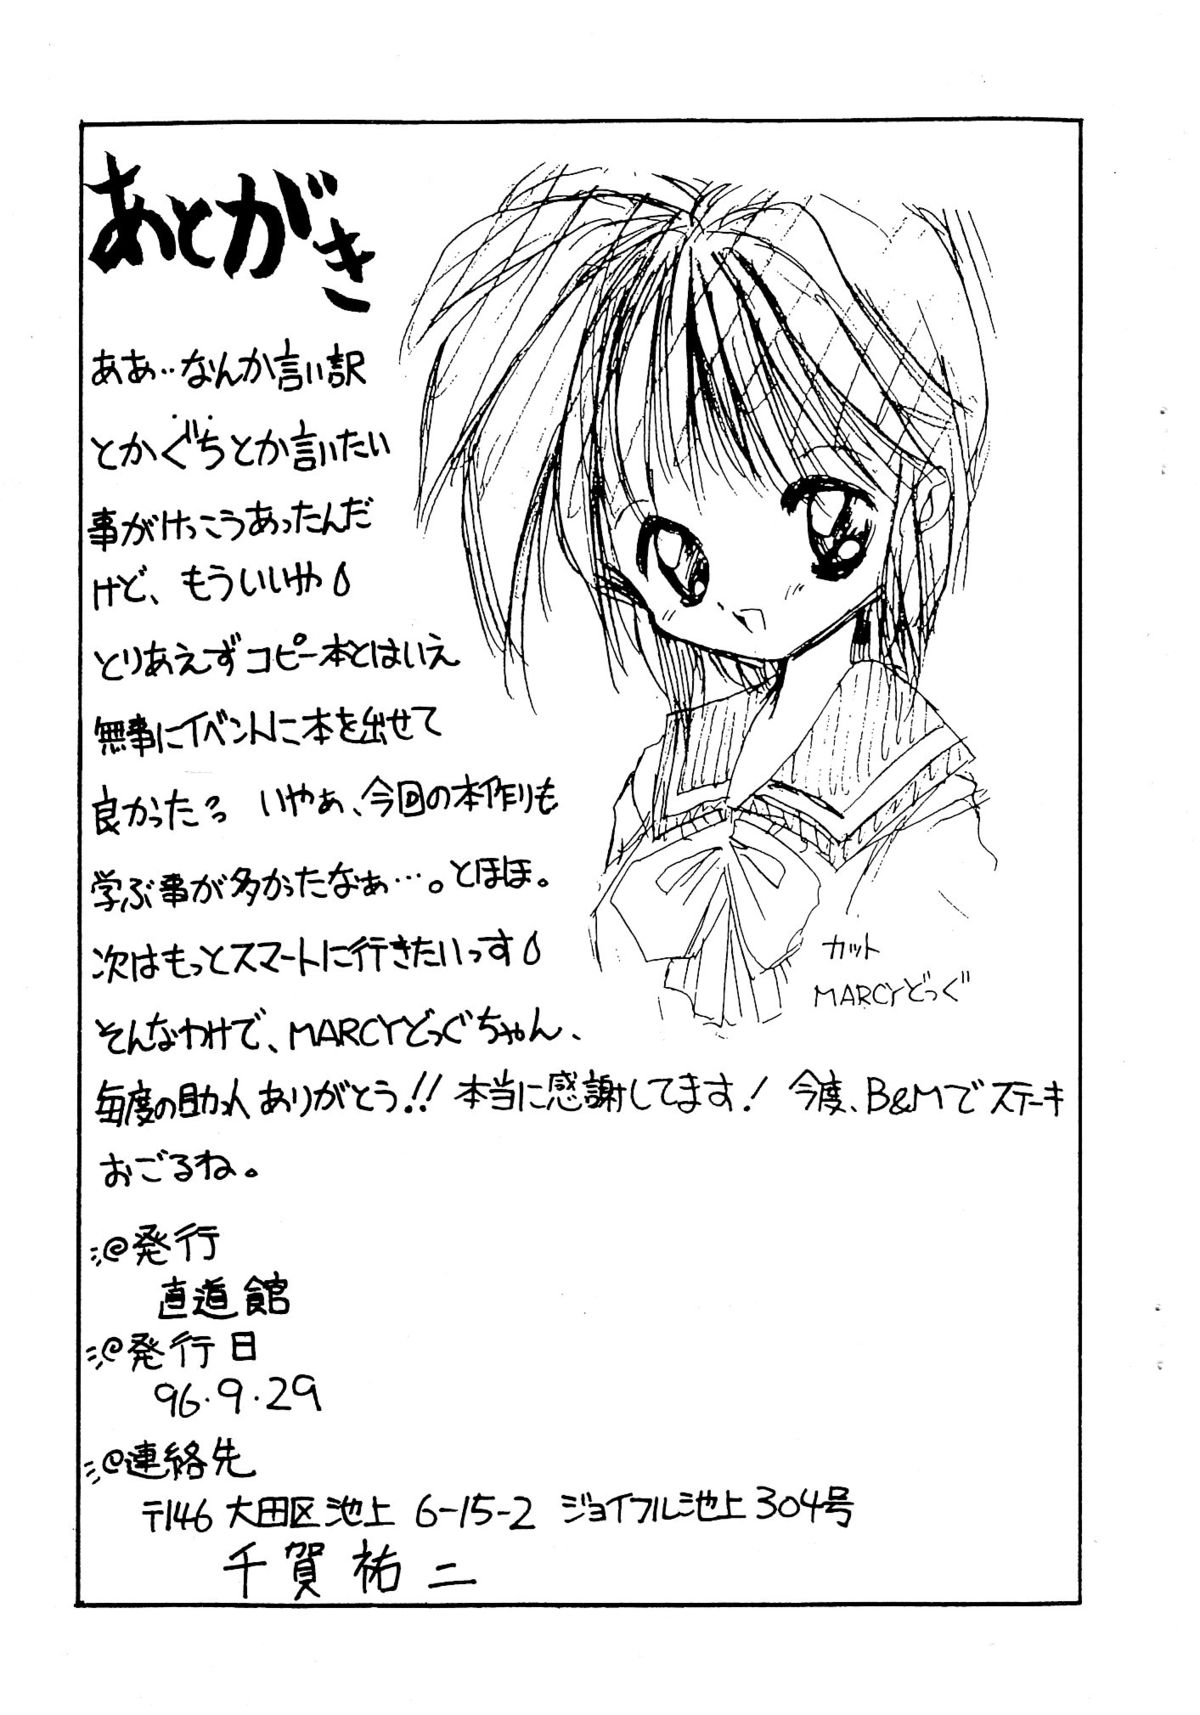 あとがき
ああ‥なんか言い訳
とかぐちとか言いたい
事がけっこうあったんだ
けど、もういいや
とりあえずコピー本とはいえ
無事にイベントに本を出せて
良かった。いやぁ、今回の本作りも
学ぶ事が多かったなぁ…。とほほ。
次はもっとスマートに行きたいっす
そんなわけで、MARCYどっぐちゃん、
毎度の助人ありがとう!!本当に感謝してます!今度、B&Mでステーキ
おごるね。
カット
MARCYどっぐ
@発行
直道館
@発行日
96.9.29
@連絡先
〒146 大田区池上 6-15-2 ジョイフル池上304号
千賀祐二